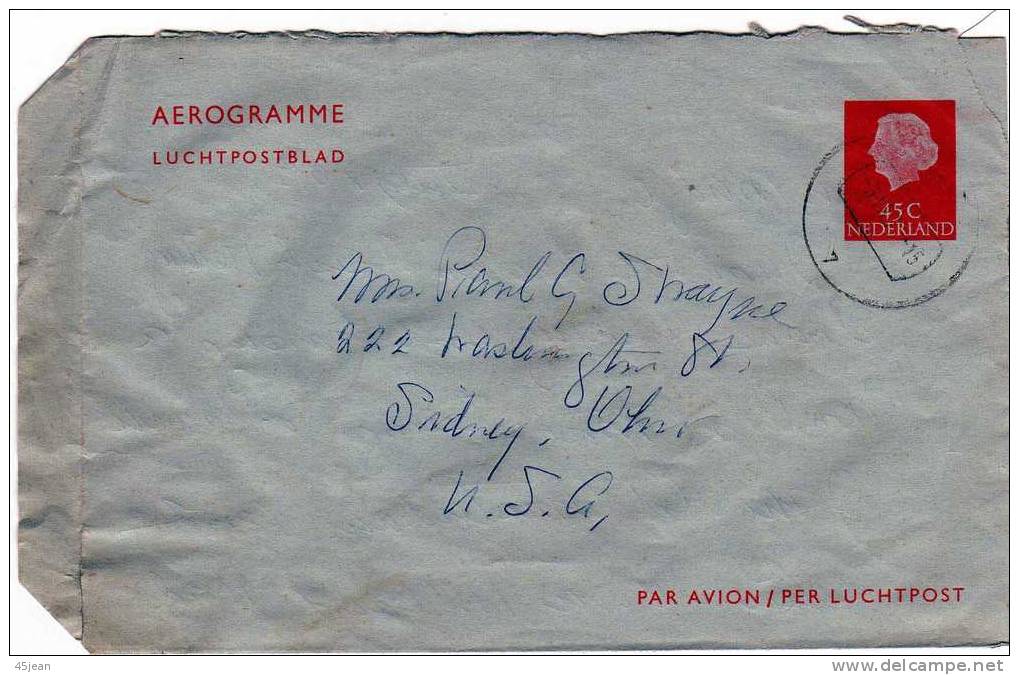 AEROGRAMME
LUCHTPOSTBLAD
45 C
NEDERLAND
Mrs. Paul G Swayne
222 Washington St.
Sidney, Ohio
U.S.A,
PAR AVION / PER LUCHTPOST
45jean
www.delcampe.net